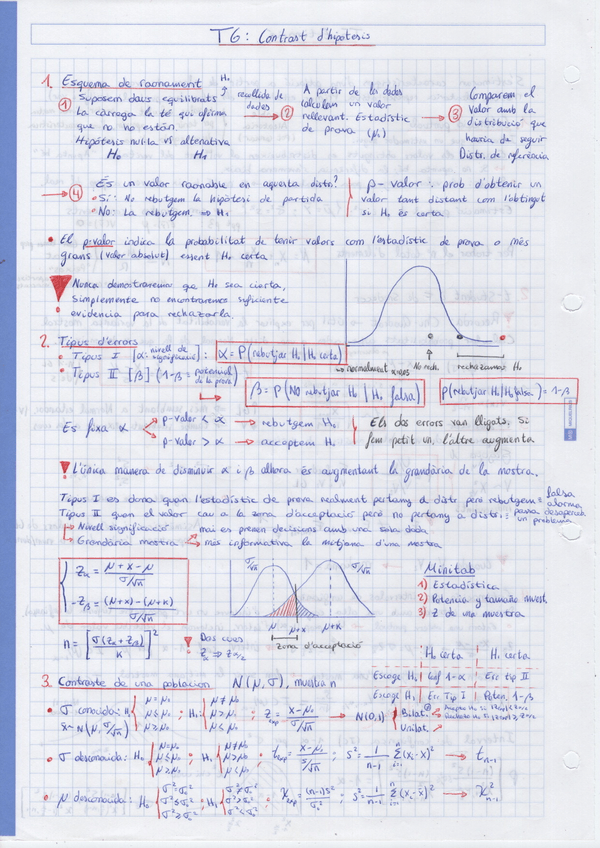 T6: Contrast d'hipòtesis
1. Esquema de raonament
① Suposem daus equilibrats
La càrrega la té qui afirma
que no ho están.
Hipòtesis nul·la vs alternativa
H₀ H₁
H₀
recollida de
dades
② A partir de la dades
calculem un valor
rellevant. Estadístic
de prova
③ Comparem el
valor amb la
distribució que
hauria de seguir
Distr. de referència
④ És un valor raonable en aquesta distr?
• Sí: No rebutgem la hipòtesi de partida
• No: La rebutgem. ⇒ H₁
p-valor: prob d'obtenir un
valor tant distant com l'obtingut
si H₀ és certa
• El p-valor indica la probabilitat de tenir valors com l'estadístic de prova o més
grans (valor absolut) essent H₀ certa
Nunca demostraremos que H₀ sea cierta,
Simplemente no encontraremos suficiente
evidencia para rechazarla.
No rech. rechazamos H₀
2. Tipus d'errors
• Tipus I [α: nivell de significació]: α = P(rebutjar H₀ | H₀ certa)
→ normalment α = 0.05
• Tipus II [β] (1-β = potencial de la prova)
β = P(NO rebutjar H₀ | H₀ falsa)
P(rebutjar H₀ | H₀ falsa) = 1-β
Es fixa α
p-valor < α → rebutgem H₀
p-valor > α → acceptem H₀
Els dos errors van lligats. Si
fem petit un, l'altre augmenta
L'única manera de disminuir α i β alhora és augmentant la grandària de la mostra.
Tipus I es dona quan l'estadístic de prova realment pertany a distr però rebutgem = falsa alarma
Tipus II quan el valor cau a la zona d'acceptació però no pertany a distr. = passa desaparcebut un problema
Nivell significació
Grandària mostra
mai es prenen decisions amb una sola dada
més informativa la mitjana d'una mostra
Zα = (μ+x-μ)/(σ/√n)
-Zβ = (μ+x)-(μ+k)/(σ/√n)
σ/√n σ/√n
μ μ+x μ+k
zona d'acceptació
Minitab
1) Estadística
2) Potencia y tamaño muest.
3) Z de una muestra
n = [σ(Zα+Zβ)/K]²
Dos cues
Zα ⇒ Zα/2
H₀ certa H₁ certa
Escoge H₀ Conf 1-α Err tip II
Escoge H₁ Err Tip I Poten. 1-β
3. Contraste de una poblacion N(μ,σ), muestra n
• σ conocida: H₀ {μ=μ₀ μ≤μ₀ μ≥μ₀ ; H₁: {μ≠μ₀ μ>μ₀ μ<μ₀ ; Z_exp = (x̄-μ₀)/(σ/√n) → N(0,1)
x̄~N(μ,σ/√n)
Bilat.
Unilat.
• σ desconocida: H₀ {μ=μ₀ μ≤μ₀ μ≥μ₀ ; H₁ {μ≠μ₀ μ>μ₀ μ<μ₀ ; t_exp = (x̄-μ₀)/(s/√n) ; s² = 1/(n-1) Σ(xᵢ-x̄)² → t_{n-1}
• μ desconocida: H₀ {σ²=σ₀² σ²≤σ₀² σ²≥σ₀² ; H₁ {σ²≠σ₀² σ²>σ₀² σ²<σ₀² ; χ_exp = (n-1)s²/σ₀² ; s² = 1/(n-1) Σ(xᵢ-x̄)² → χ²_{n-1}